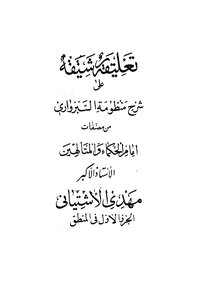 تعليقة رشيقة
على
شرح منظومة السبزواري
من مصنفات
امام الحكماء والمتالهين
الاستاذ الاكبر
مهدى الاشتيانى
الجزء الاول فى المنطق